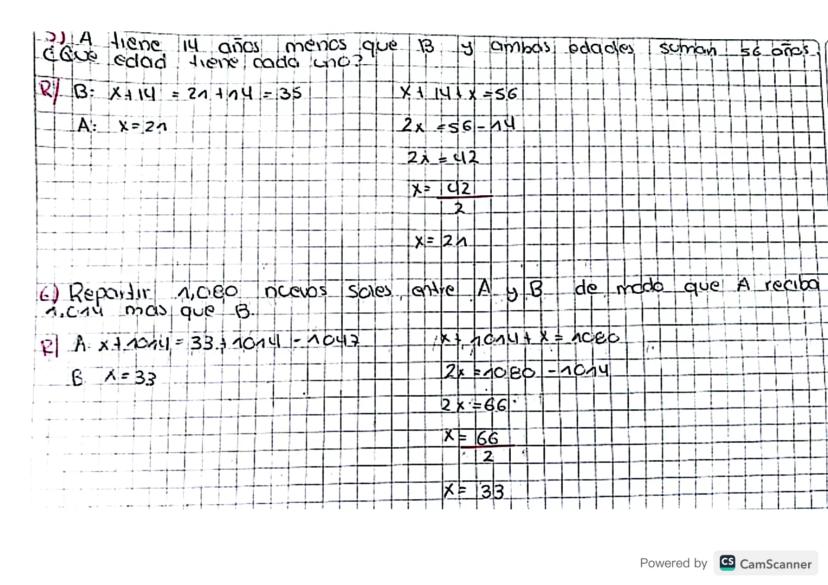 5) A tiene 14 años menos que B y ambas edades suman 56 años.
¿Qué edad tiene cada uno?
R/ B: x+14 = 21+14 = 35
A: x=21
x+14+x=56
2x=56-14
2x=42
x=42
2
x=21
6) Repartir 1,080 nuevos soles, entre A y B de modo que A reciba
1.014 mas que B.
R/ A x+1014= 33+1014=1047
B x=33
x+1014+x=1080
2x=1080-1014
2x=66
x=66
2
x=33
Powered by CS CamScanner